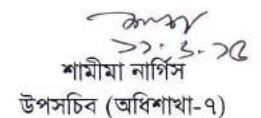 ১১.১.১৫
শামীমা নার্গিস
উপসচিব (অধিশাখা-৭)